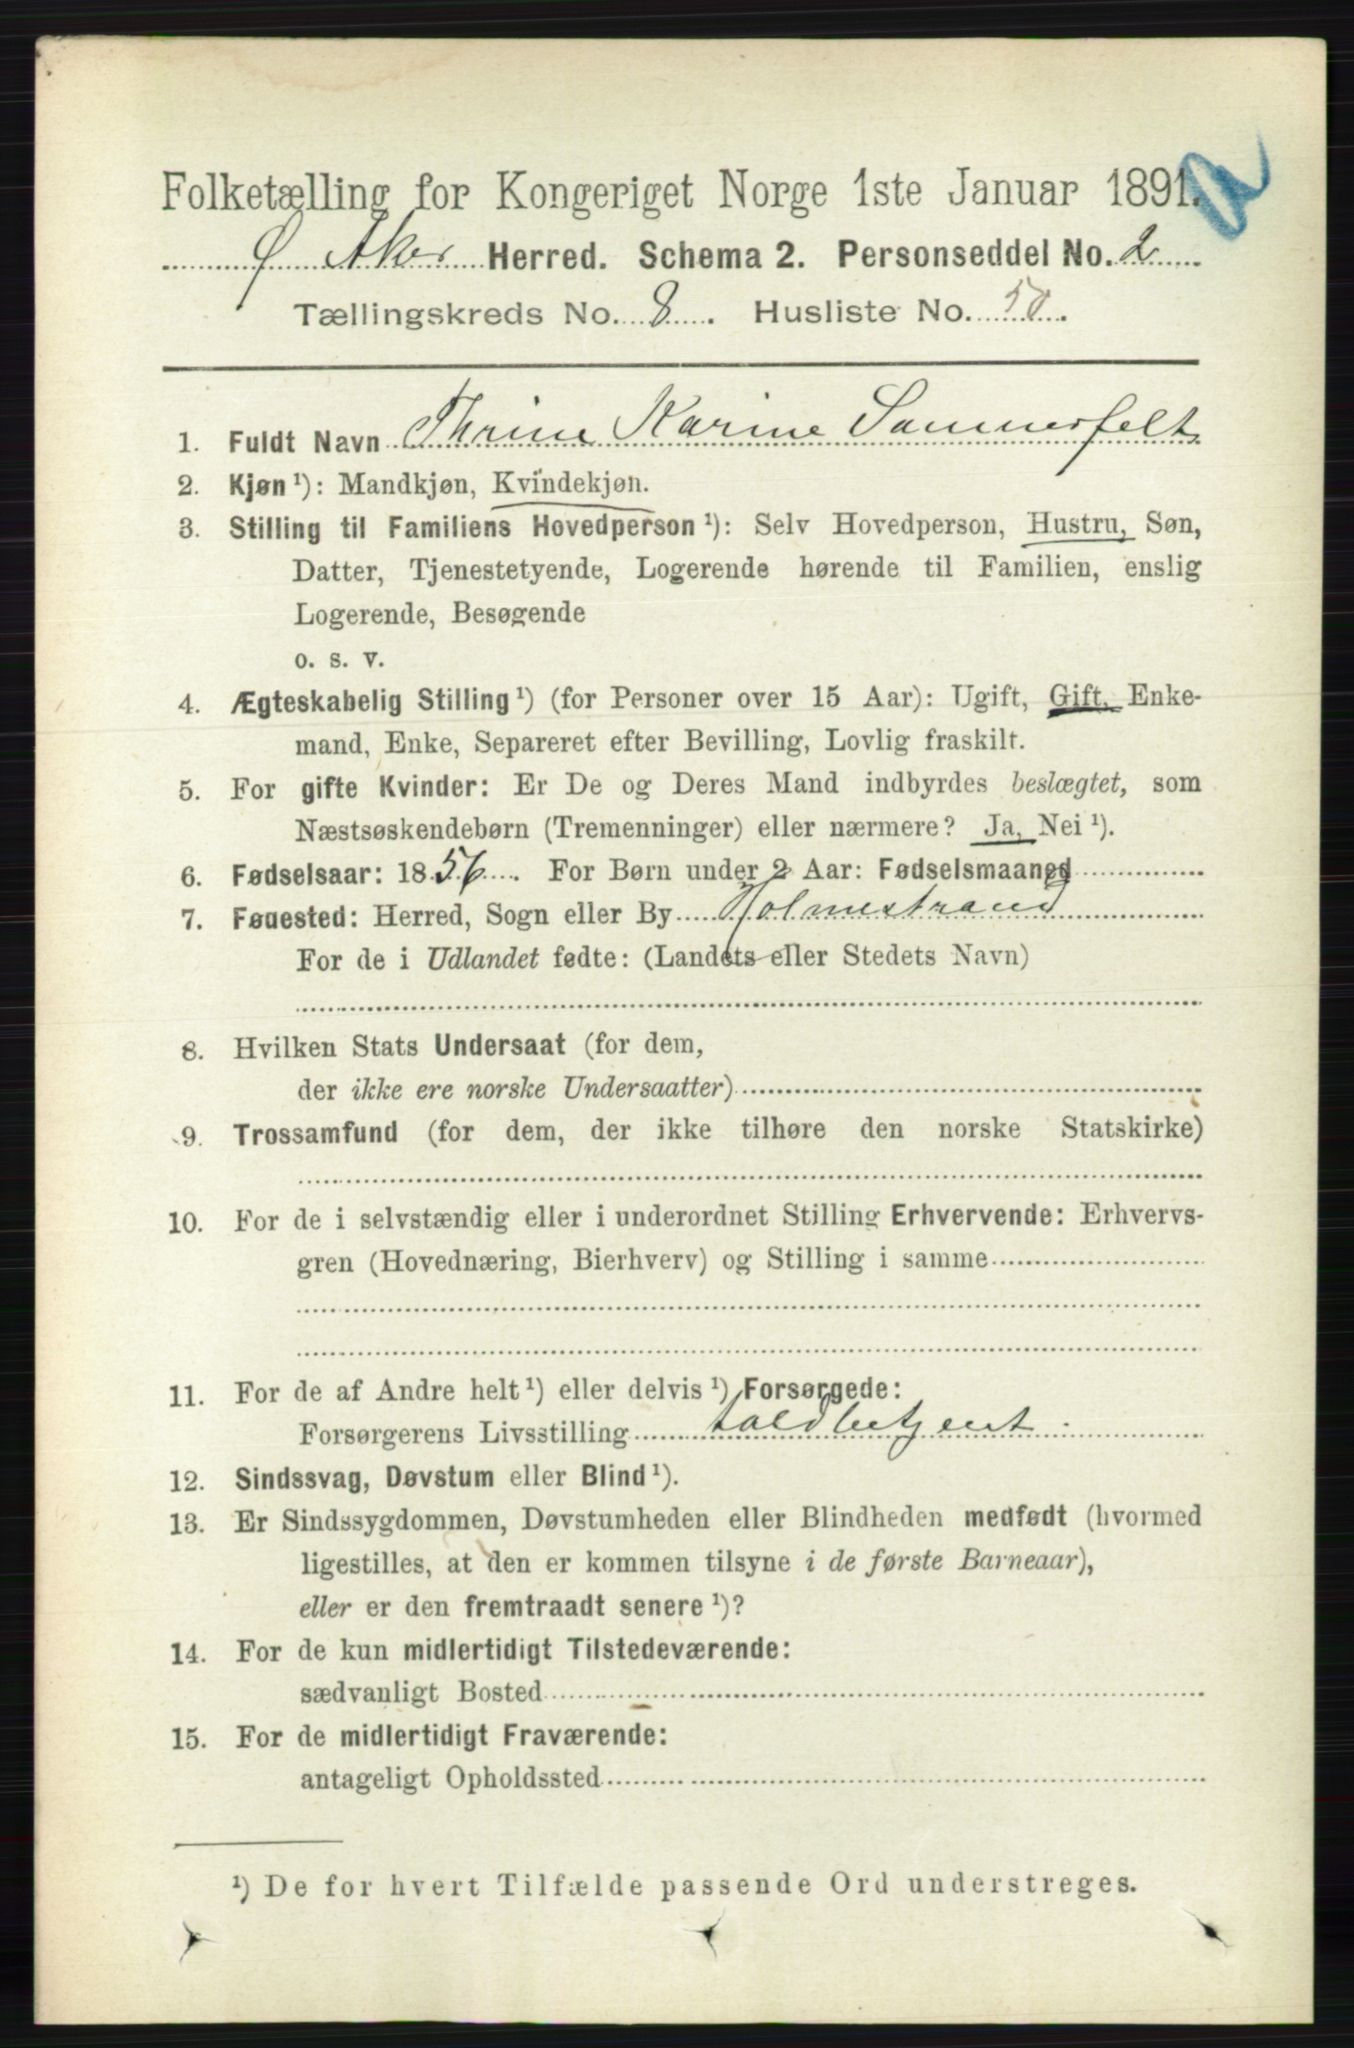 Folketælling for Kongeriget Norge 1ste Januar 1891.
Ø Aker Herred. Schema 2. Personseddel No. 2
Tællingskreds No. 8. Husliste No. 50.
1. Fuldt Navn Thrine Karine Sommerfelt
2. Kjøn ¹): Mandkjøn, Kvindekjøn.
3. Stilling til Familiens Hovedperson ¹): Selv Hovedperson, Hustru, Søn,
Datter, Tjenestetyende, Logerende hørende til Familien, enslig
Logerende, Besøgende
o. s. v.
4. Ægteskabelig Stilling ¹) (for Personer over 15 Aar): Ugift, Gift, Enke-
mand, Enke, Separeret efter Bevilling, Lovlig fraskilt.
5. For gifte Kvinder: Er De og Deres Mand indbyrdes beslægtet, som
Næstsøskendebørn (Tremenninger) eller nærmere? Ja, Nei ¹).
6. Fødselsaar: 1856. For Børn under 2 Aar: Fødselsmaaned
7. Føuested: Herred, Sogn eller By Holmestrand
For de i Udlandet fødte: (Landets eller Stedets Navn)
8. Hvilken Stats Undersaat (for dem,
der ikke ere norske Undersaatter)
9. Trossamfund (for dem, der ikke tilhøre den norske Statskirke)
10. For de i selvstændig eller i underordnet Stilling Erhvervende: Erhvervs-
gren (Hovednæring, Bierhverv) og Stilling i samme
11. For de af Andre helt ¹) eller delvis ¹) Forsørgede:
Forsørgerens Livsstilling toldbetjent.
12. Sindssvag, Døvstum eller Blind ¹).
13. Er Sindssygdommen, Døvstumheden eller Blindheden medfødt (hvormed
ligestilles, at den er kommen tilsyne i de første Barneaar),
eller er den fremtraadt senere ¹)?
14. For de kun midlertidigt Tilstedeværende:
sædvanligt Bosted
15. For de midlertidigt Fraværende:
antageligt Opholdssted
¹) De for hvert Tilfælde passende Ord understreges.